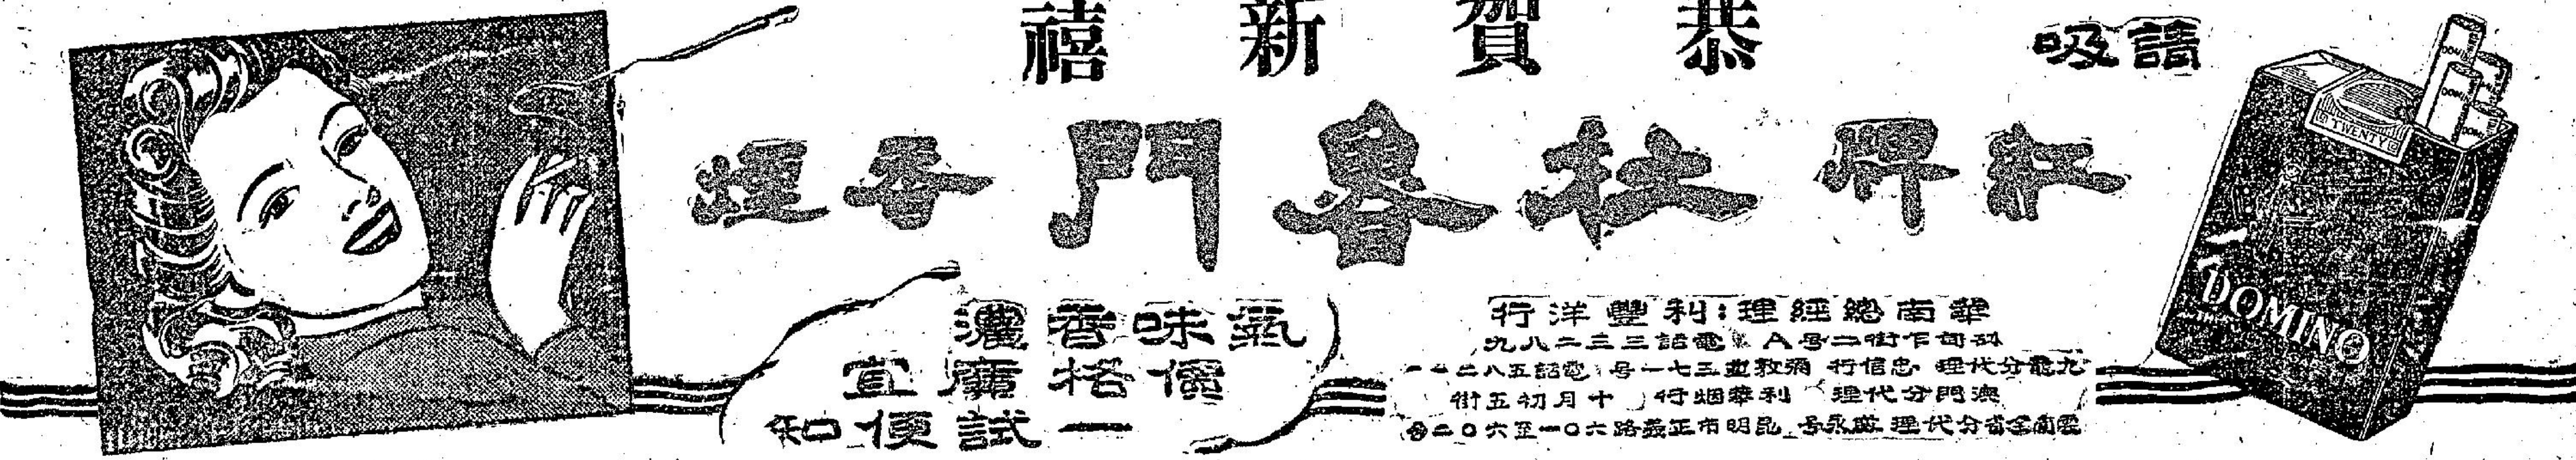 恭賀新禧
請吸
紅牌杜魯門香煙
氣味香濃
價格廉宜
一試便知
華南總經理:利豐洋行
砵甸乍街二号A 電話三三二八九
九龍分代理 忠信行 彌敦道三七一号 電話五八二一一
澳門分代理 利華烟行 十月初五街
雲南全省分代理 永号 昆明市正義路六〇一至六〇二号
TWENTY
DOMINO